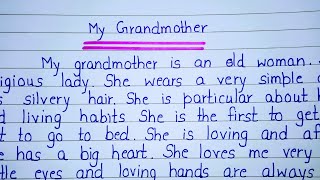 My Grandmother
My grandmother is an old woman.
religious lady. She wears a very simple
silvery hair. She is particular about
living habits She is the first to get
to go to bed. She is loving and
has a big heart. She loves me very
eyes and loving hands are always